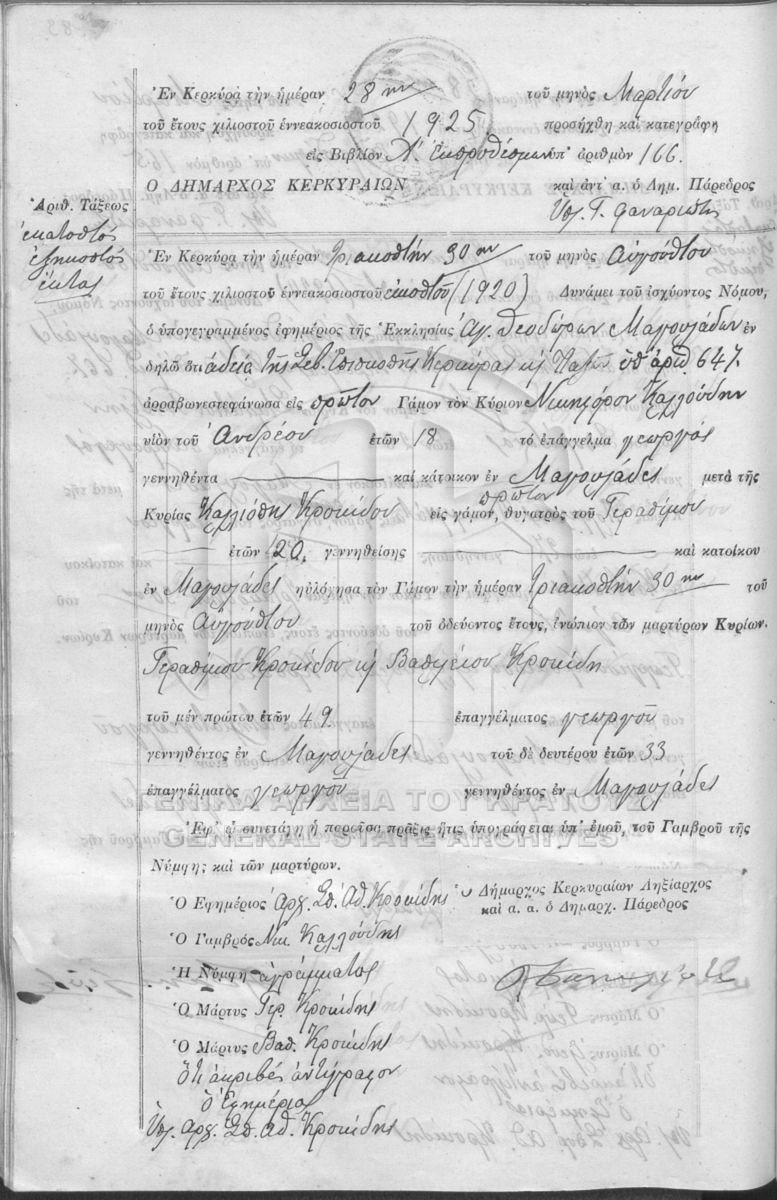 Ἐν Κερκύρᾳ τὴν ἡμέραν 28ην τοῦ μηνὸς Μαρτίου
τοῦ ἔτους χιλιοστοῦ ἐννεακοσιοστοῦ 1925 προσήχθη καὶ κατεγράφη
εἰς Βιβλίον Λ. Ἐκπροθέσμων ὑπ' ἀριθμὸν 166.
Ο ΔΗΜΑΡΧΟΣ ΚΕΡΚΥΡΑΙΩΝ καὶ ἀντ' α. ὁ Δημ. Πάρεδρος
Ὑπ. Γ. Φαναριώτης
Ἀριθ. Τάξεως
ἑκατοστὸς
ἑξηκοστὸς
ἕκτος
Ἐν Κερκύρᾳ τὴν ἡμέραν τριακοστὴν 30ην τοῦ μηνὸς Αὐγούστου
τοῦ ἔτους χιλιοστοῦ ἐννεακοσιοστοῦ εἰκοστοῦ (1920) Δυνάμει τοῦ ἰσχύοντος Νόμου,
ὁ ὑπογεγραμμένος ἐφημέριος τῆς Ἐκκλησίας Ἁγ. Θεοδώρων Μαγουλάδων ἐν
δηλῶ ὅτι ἀδείᾳ τῆς Σεβ. Ἐπισκοπῆς Κερκύρας κ Παξῶν ὑπ' ἀριθ. 647.
ἀρραβωνεστεφάνωσα εἰς πρῶτον Γάμον τὸν Κύριον Νικηφόρον Καλλούδην
υἱὸν τοῦ Ἀνδρέου ἐτῶν 18 τὸ ἐπάγγελμα γεωργὸς
γεννηθέντα καὶ κάτοικον ἐν Μαγουλάδες μετὰ τῆς
πρῶτον
Κυρίας Καλλιόπης Κροκίδου εἰς γάμον, θυγατρὸς τοῦ Γερασίμου
ἐτῶν 20. γεννηθείσης καὶ κατοίκου
ἐν Μαγουλάδες ηὐλόγησα τὸν Γάμον τὴν ἡμέραν τριακοστὴν 30ην τοῦ
μηνὸς Αὐγούστου τοῦ ὁδεύοντος ἔτους, ἐνώπιον τῶν μαρτύρων Κυρίων.
Γερασίμου Κροκίδου κ Βασιλείου Κροκίδη
τοῦ μὲν πρώτου ἐτῶν 49 ἐπαγγέλματος γεωργοῦ
γεννηθέντος ἐν Μαγουλάδες τοῦ δὲ δευτέρου ἐτῶν 33
ἐπαγγέλματος γεωργοῦ γεννηθέντος ἐν Μαγουλάδες
ΓΕΝΙΚΑ ΑΡΧΕΙΑ ΤΟΥ ΚΡΑΤΟΥΣ
Ἐφ' ᾧ συνετάγη ἡ παροῦσα πρᾶξις ἥτις ὑπογράφεται ὑπ' ἐμοῦ, τοῦ Γαμβροῦ τῆς
GENERAL STATE ARCHIVES
Νύμφης καὶ τῶν μαρτύρων.
Ὁ Ἐφημέριος Ἀρχ. Σπ. Ἀθ. Κροκίδης
Ὁ Δήμαρχος Κερκυραίων Ληξίαρχος
καὶ α. α. ὁ Δημαρχ. Πάρεδρος
Ὁ Γαμβρός Νικ. Καλλούδης
Ἡ Νύμφη ἀγράμματος
Ὁ Μάρτυς Γερ. Κροκίδης
Ὁ Μάρτυς Βασ. Κροκίδης
Ὅτι ἀκριβὲς ἀντίγραφον
Ὁ Ἐφημέριος
Ὑπ. Ἀρχ. Σπ. Ἀθ. Κροκίδης